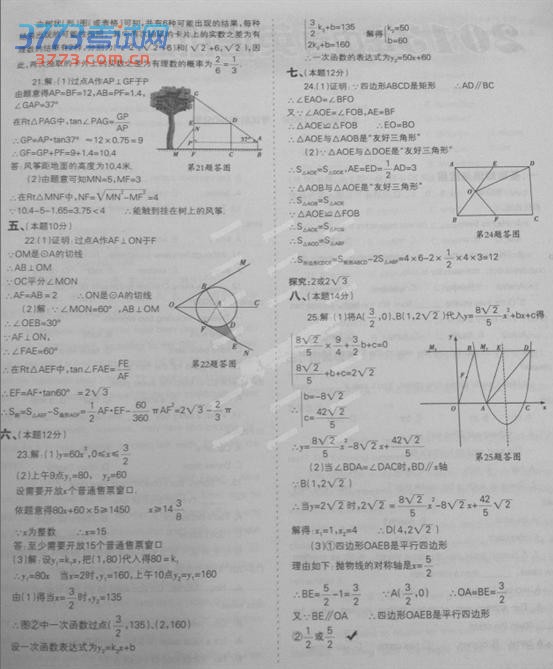 由树状(图)图(或表格)可知,共有6种可能出现的结果,每种
此,两次抽取的卡片上的实数之差为有理数的概率为2/6=1/3.
21.解:(1)过点A作AP⊥GF于P
由题意得AP=BF=12,AB=PF=1.4,
∠GAP=37°
在Rt△PAG中,tan∠PAG=GP/AP
∴GP=AP·tan37°≈12×0.75=9
∴GF=GP+PF=9+1.4=10.4
答:风筝距地面的高度为10.4米.
第21题答图
(2)由题意可知MN=5,MF=3
∴在Rt△MNF中,NF=√(MN²-MF²)=4
∵10.4-5-1.65=3.75<4 ∴能触到挂在树上的风筝.
五、(本题10分)
22.(1)证明:过点A作AF⊥ON于F
∵OM是⊙A的切线
∴AB⊥OM
∵OC平分∠MON
∴AF=AB=2 ∴ON是⊙A的切线
(2)解:∵∠MON=60°,AB⊥OM
∴∠OEB=30°
∵AF⊥ON,
∴∠FAE=60°
∴在Rt△AEF中,tan∠FAE=FE/AF
第22题答图
∴EF=AF·tan60°=2√3
∴S阴=S△AEF-S扇形ADF=1/2AF·EF-60/360πAF²=2√3-2/3π
六、(本题12分)
23.解:(1)y=60x²,0≤x≤3/2
(2)上午9点y₁=80, y₂=60
设需要开放x个普通售票窗口.
依题意得80x+60×5≥1450 x≥14 3/8
∵x为整数 ∴x=15
答:至少需要开放15个普通售票窗口
(3)解:设y₁=k₁x,把(1,80)代入得80=k₁
∴y₁=80x 当x=2时,y₁=160,上午10点y₂=y₁=160
由(1)得当x=3/2时,y₂=135
∴图②中一次函数过点(3/2,135)、(2,160)
设一次函数表达式为y₂=k₂x+b
3/2k₂+b=135
2k₂+b=160
解得 k₂=50
b=60
∴一次函数的表达式为y₂=50x+60
七、(本题12分)
24.(1)证明:∵四边形ABCD是矩形 ∴AD//BC
∴∠EAO=∠BFO
又∵∠AOE=∠FOB,AE=BF
∴△AOE≌△FOB ∴EO=BO
∴△AOE与△AOB是“友好三角形”
(2)∵△AOE与△DOE是“友好三角形”
∴S△AOE=S△DOE,AE=ED=1/2AD=3
∵△AOB与△AOE是“友好三角形”
∴S△AOB=S△AOE
∵△AOE≌△FOB
∴S△AOE=S△FOB
∴S△AOD=S△ABF
第24题答图
∴S四边形CDOF=S矩形ABCD-2S△ABF=4×6-2×1/2×4×3=12
探究:2或2√3
八、(本题14分)
25.解:(1)将A(3/2,0)、B(1,2√2)代入y=8√2/5x²+bx+c得
8√2/5×9/4+3/2b+c=0
8√2/5+b+c=2√2
b=-8√2
∴ c=42√2/5
∴y=8√2/5x²-8√2x+42√2/5
第25题答图
(2)当∠BDA=∠DAC时,BD//x轴
∵B(1,2√2)
∴当y=2√2时,2√2=8√2/5x²-8√2x+42/5√2
解得:x₁=1,x₂=4 ∴D(4,2√2)
(3)①四边形OAEB是平行四边形
理由如下:抛物线的对称轴是x=5/2
∴BE=5/2-1=3/2 ∵A(3/2,0) ∴OA=BE=3/2
又∵BE//OA ∴四边形OAEB是平行四边形
②1/2或5/2 ✔